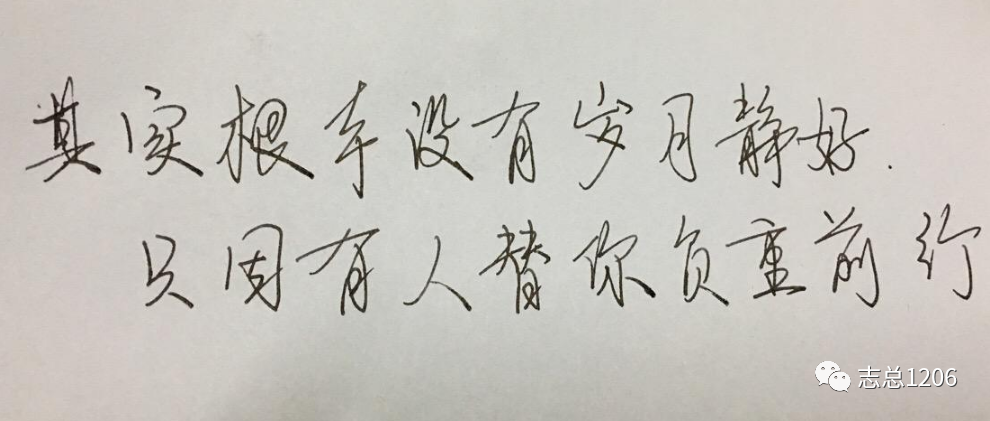 其实根本没有岁月静好.
只因有人替你负重前行
志总1206